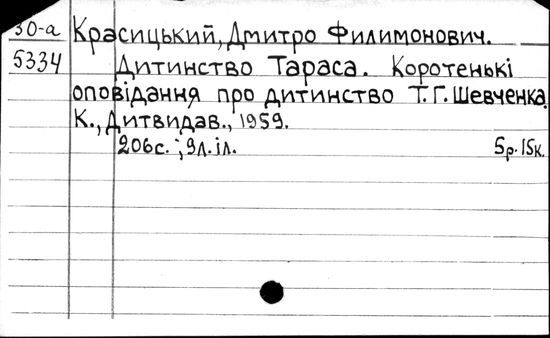 30-а Красицький, Дмитро Филимонович.
5334 Дитинство Тараса. Коротенькі
оповідання про дитинство Т.Г. Шевченка.
К., Дитвидав., 1959.
206с.; 9л.іл. 5р.15к.